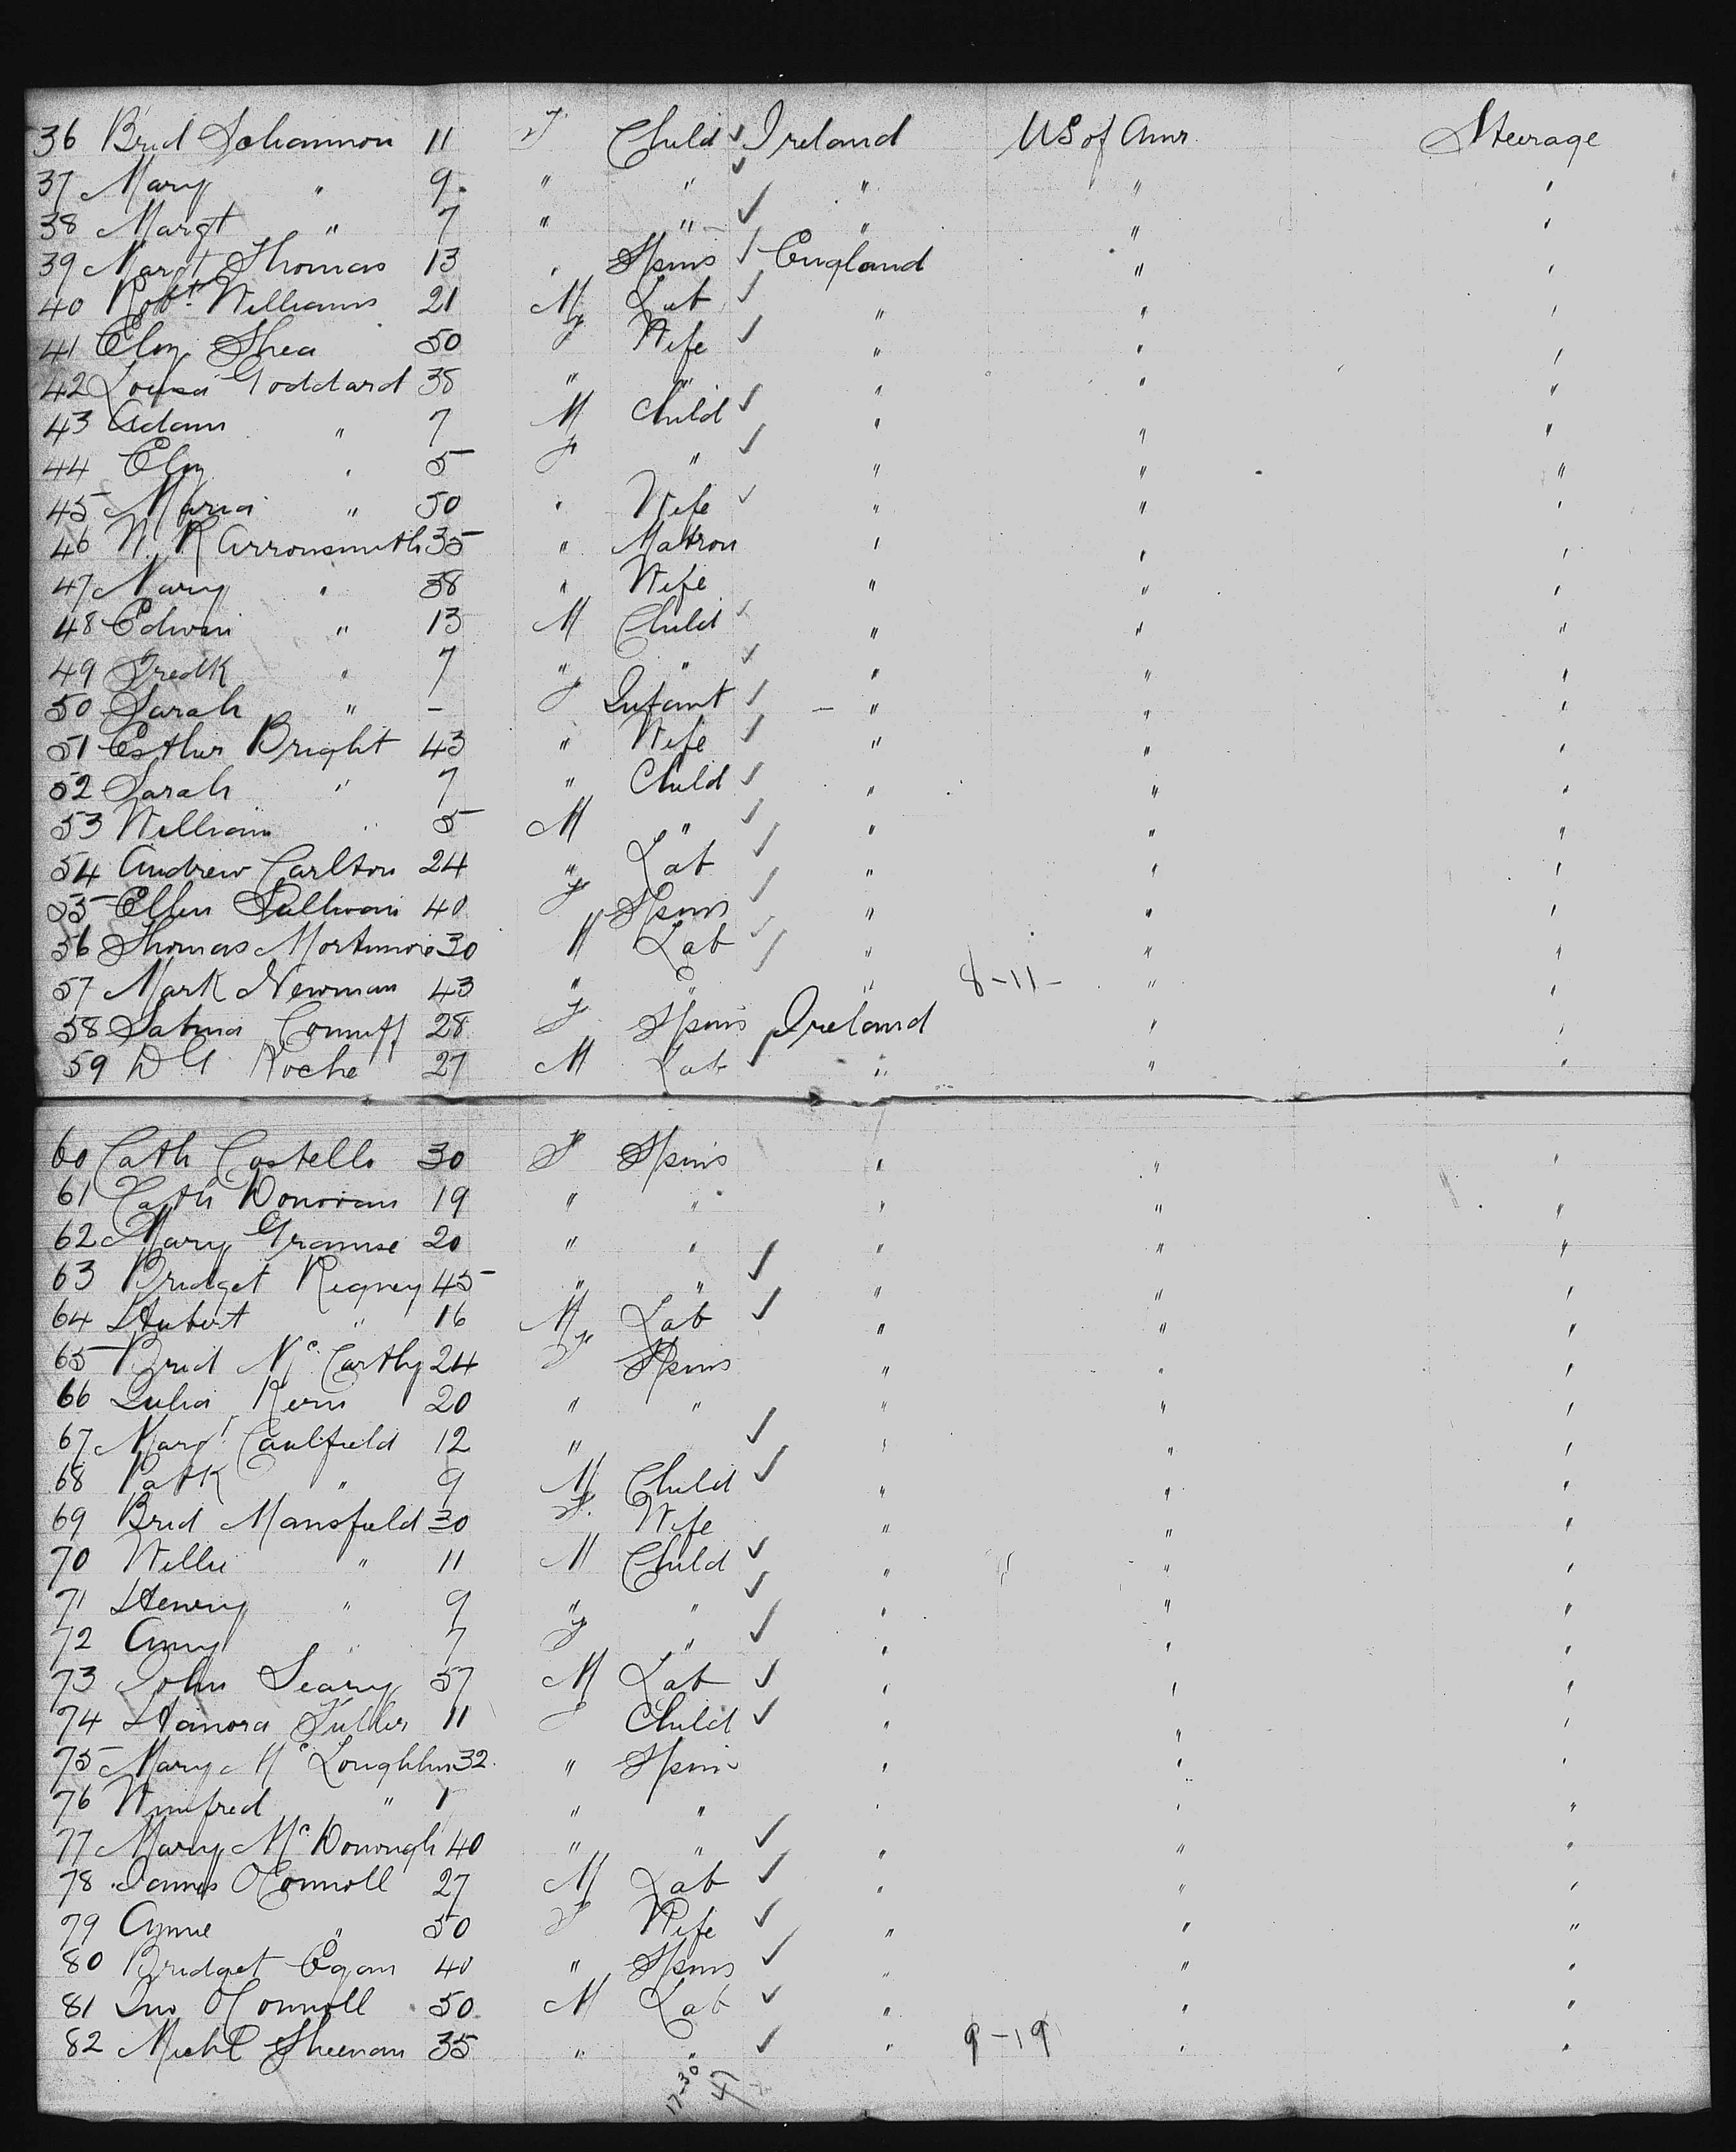 36 Brid Sohannon 11 F Child ✓ Ireland US of Amr Steerage
37 Mary " 9 " " ✓ " " "
38 Margt " 7 " " ✓ " " "
39 Margt Thomas 13 " Spins ✓ England " "
40 Robt Williams 21 M Lab ✓ " " "
41 Eliz Shea 50 F Wife ✓ " " "
42 Louisa Goddard 38 " " " " "
43 Adam " 7 M Child ✓ " " "
44 Eliz " 5 F " ✓ " " "
45 Maria " 50 " Wife ✓ " " "
46 M. R Arronsmith 35 " Matron " " "
47 Mary " 38 " Wife " " "
48 Edwin " 13 M Child ✓ " " "
49 Fredk " 7 " " ✓ " " "
50 Sarah " - F Infant ✓ - " " "
51 Esther Bright 43 " Wife ✓ " " "
52 Sarah " 7 " Child ✓ " " "
53 William " 5 M " ✓ " " "
54 Andrew Carlton 24 " Lab ✓ " " "
55 Ellen Sullivan 40 F Spins ✓ " " "
56 Thomas Mortimore 30 M Lab ✓ " " "
57 Mark Newman 43 " " ✓ " 8-11- " "
58 Sabina Conniff 28 F Spins Ireland " "
59 D G Roche 27 M Lab ✓ " " "
60 Cath Costello 30 F Spins " " "
61 Cath Donovan 19 " " " " "
62 Mary 20 " " " " "
63 Bridget Regney 45 " " ✓ " " "
64 Hubert " 16 M Lab ✓ " " "
65 Brid Mc Carthy 24 F Spins " " "
66 Julia Kern 20 " " " " "
67 Margt Caulfield 12 " ✓ " " "
68 Patk " 9 M Child ✓ " " "
69 Brid Mansfield 30 F. Wife " " "
70 Willie " 11 M Child ✓ " " "
71 Henry " 9 " " ✓ " " "
72 Amy " 7 F " ✓ " " "
73 John Leary 57 M Lab ✓ " " "
74 Hanora 11 F Child ✓ " " "
75 Mary Mc Loughlin 32 " Spins " " "
76 Winifred " 1 " " " " "
77 Mary Mc Donough 40 " " ✓ " " "
78 James O'Connoll 27 M Lab ✓ " " "
79 Annie " 50 F Wife ✓ " " "
80 Bridget Egan 40 " Spins ✓ " " "
81 Jno O'Connoll 50 M Lab ✓ " " "
82 Michl Sheenan 35 " " ✓ " 9-19 " "
17-30
47